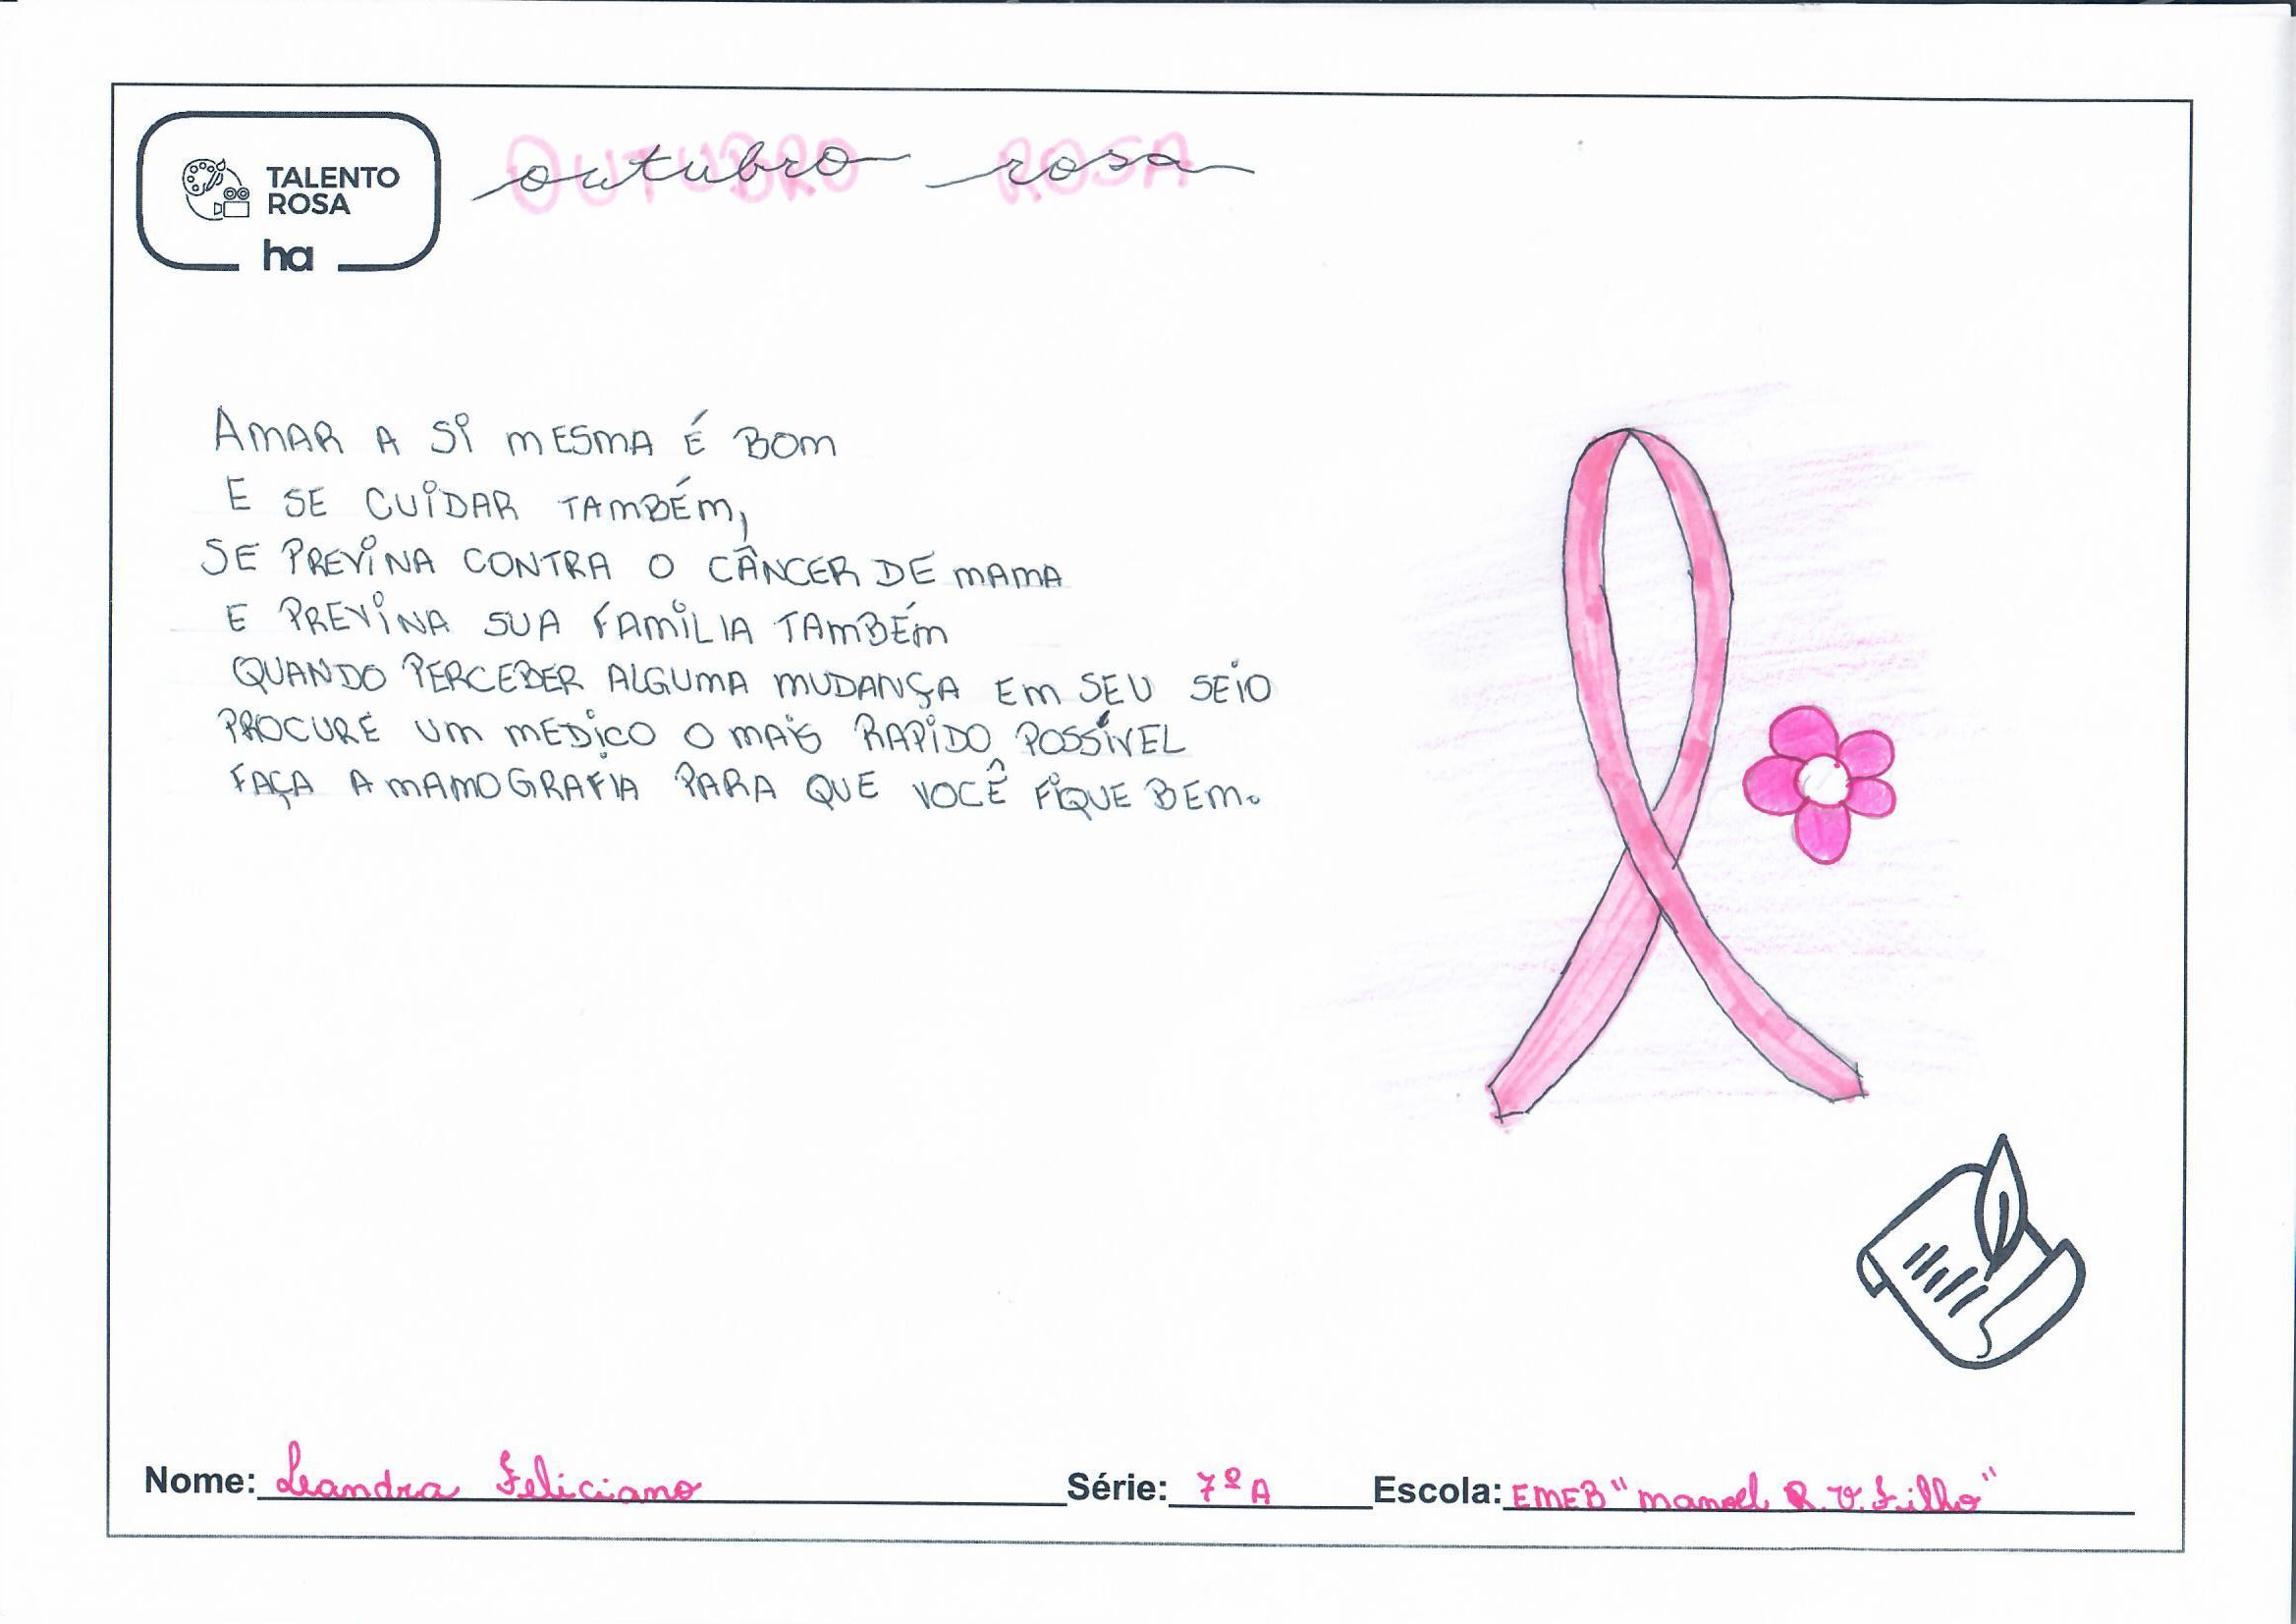 TALENTO
ROSA
ha
OUTUBRO ROSA
outubro rosa
AMAR A SI MESMA É BOM
E SE CUIDAR TAMBÉM,
SE PREVINA CONTRA O CÂNCER DE MAMA
E PREVINA SUA FAMILIA TAMBÉM
QUANDO PERCEBER ALGUMA MUDANÇA EM SEU SEIO
PROCURE UM MEDICO O MAIS RAPIDO POSSÍVEL
FAÇA A MAMOGRAFIA PARA QUE VOCÊ FIQUE BEM.
Nome: Leandra Feliciano Série: 7º A Escola: EMEB "manoel R. V. Filho"